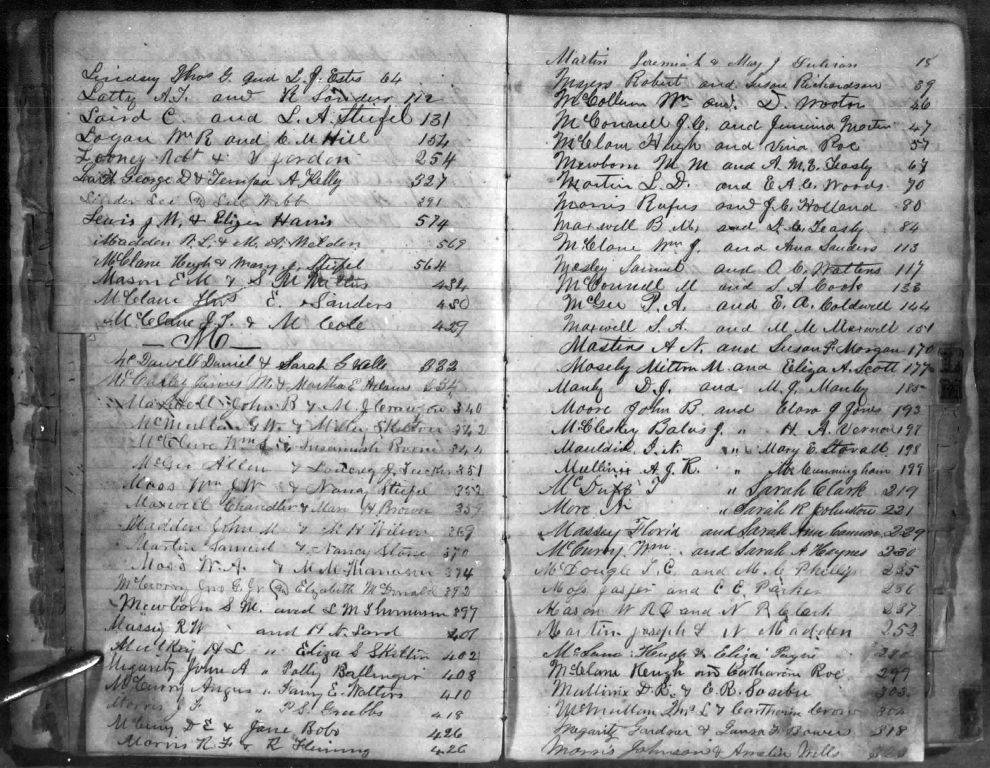 Lindsey Thos G. and L. J. Estes 64
Latty A. J. and R Sanders 112
Laird C. and L. A. Stufel 131
Logan Wm R and C. M Hill 154
Looney Robt & Jordon 254
Last George D & Tempa A Kelly 327
Linder Lee & Webb 391
Lewis J W. & Eliza Harris 574
Madden R. L. & M. A. Melden 569
McClane Hugh & Mary J. Stufel 564
Mason E. M & S M Watters 484
McClain Thos E. & Sanders 480
McClane J. T. & M Cole 429
— M —
Daniel & Sarah E Kells 332
James M. & Martha E Adams 334
Maxwell John B & M. J Crawford 340
McMullan G W. & Skelton 342
McClure Wm & Susannah Room 344
McGee Allen & Louvey J. Tucker 351
Moss Wm J W & Nancy Stufel 352
Maxwell Chandler & Mary H Brown 359
Madden John M & M H Wilson 369
Martin Samuel & Nancy Stone 370
Moss W. A. & M M Thomason 374
Jno G. Jr & Elizabeth McDonald 392
Mewborn S. M. and L M Thurmon 397
Massey R W and H N. Lord 401
Mulkey H L " Eliza S Skelton 402
Megarity John A " Polly Ballenger 408
McCurry Angus " Fany E. Walters 410
Morris J F " P S. Grubbs 418
McCurry D E & Jane Bobo 426
Morris R F & R Fleming 426
Martin Jeremiah & May J Sulivan 18
Myers Robert and Susan Richardson 39
McCollum Wm and D. Wooten 46
McConnell J. C. and Jemima Martin 47
McClam Hugh and Vina Roe 57
Mewborn M. M and A. M. E. Teasly 67
Martin L. D. and E A. C. Woods 70
Morris Rufus and J. C. Holland 80
Maxwell B M. and L. C. Teasly 84
McClane Wm J. and Ana Sanders 113
Mosley Samuel and O. C. Watters 117
McConnell M and S. A Cook 133
McGee P. A. and E. A. Coldwell 144
Maxwell S. A. and M. M. Maxwell 151
Masters A N. and Susan P. Morgan 170
Mosely Milton M and Eliza A. Scott 177
Manly D. J. and M. J. Manly 185
Moore John B. and Elora J Jones 193
McCleskey Balus J. " H A. Vernor 197
Mauldin J. N. " Mary E. Stovall 198
Mullinix A J. R. " M. Cunningham 199
McDuff T " Sarah Clark 219
More N " Sarah R Johnston 221
Massey Florid and Sarah Ann Cannon 229
McCurry Wm. and Sarah A Haynes 230
McDougle T. C. and M. C Philips 235
Moss Jasper and E E. Parker 236
Mason W R D and N P. Clark 237
Martin Joseph & N. Madden 252
McLane Hugh & Eliza
McClane Keugh and Catharine Roe 299
Mullinix D. R. & E. R. Sosebee 303
McMullan Thos L & Catharine Crow 304
Megarity Gardner & Louisa F Bower 318
Morris Johnson & Amelia Mills